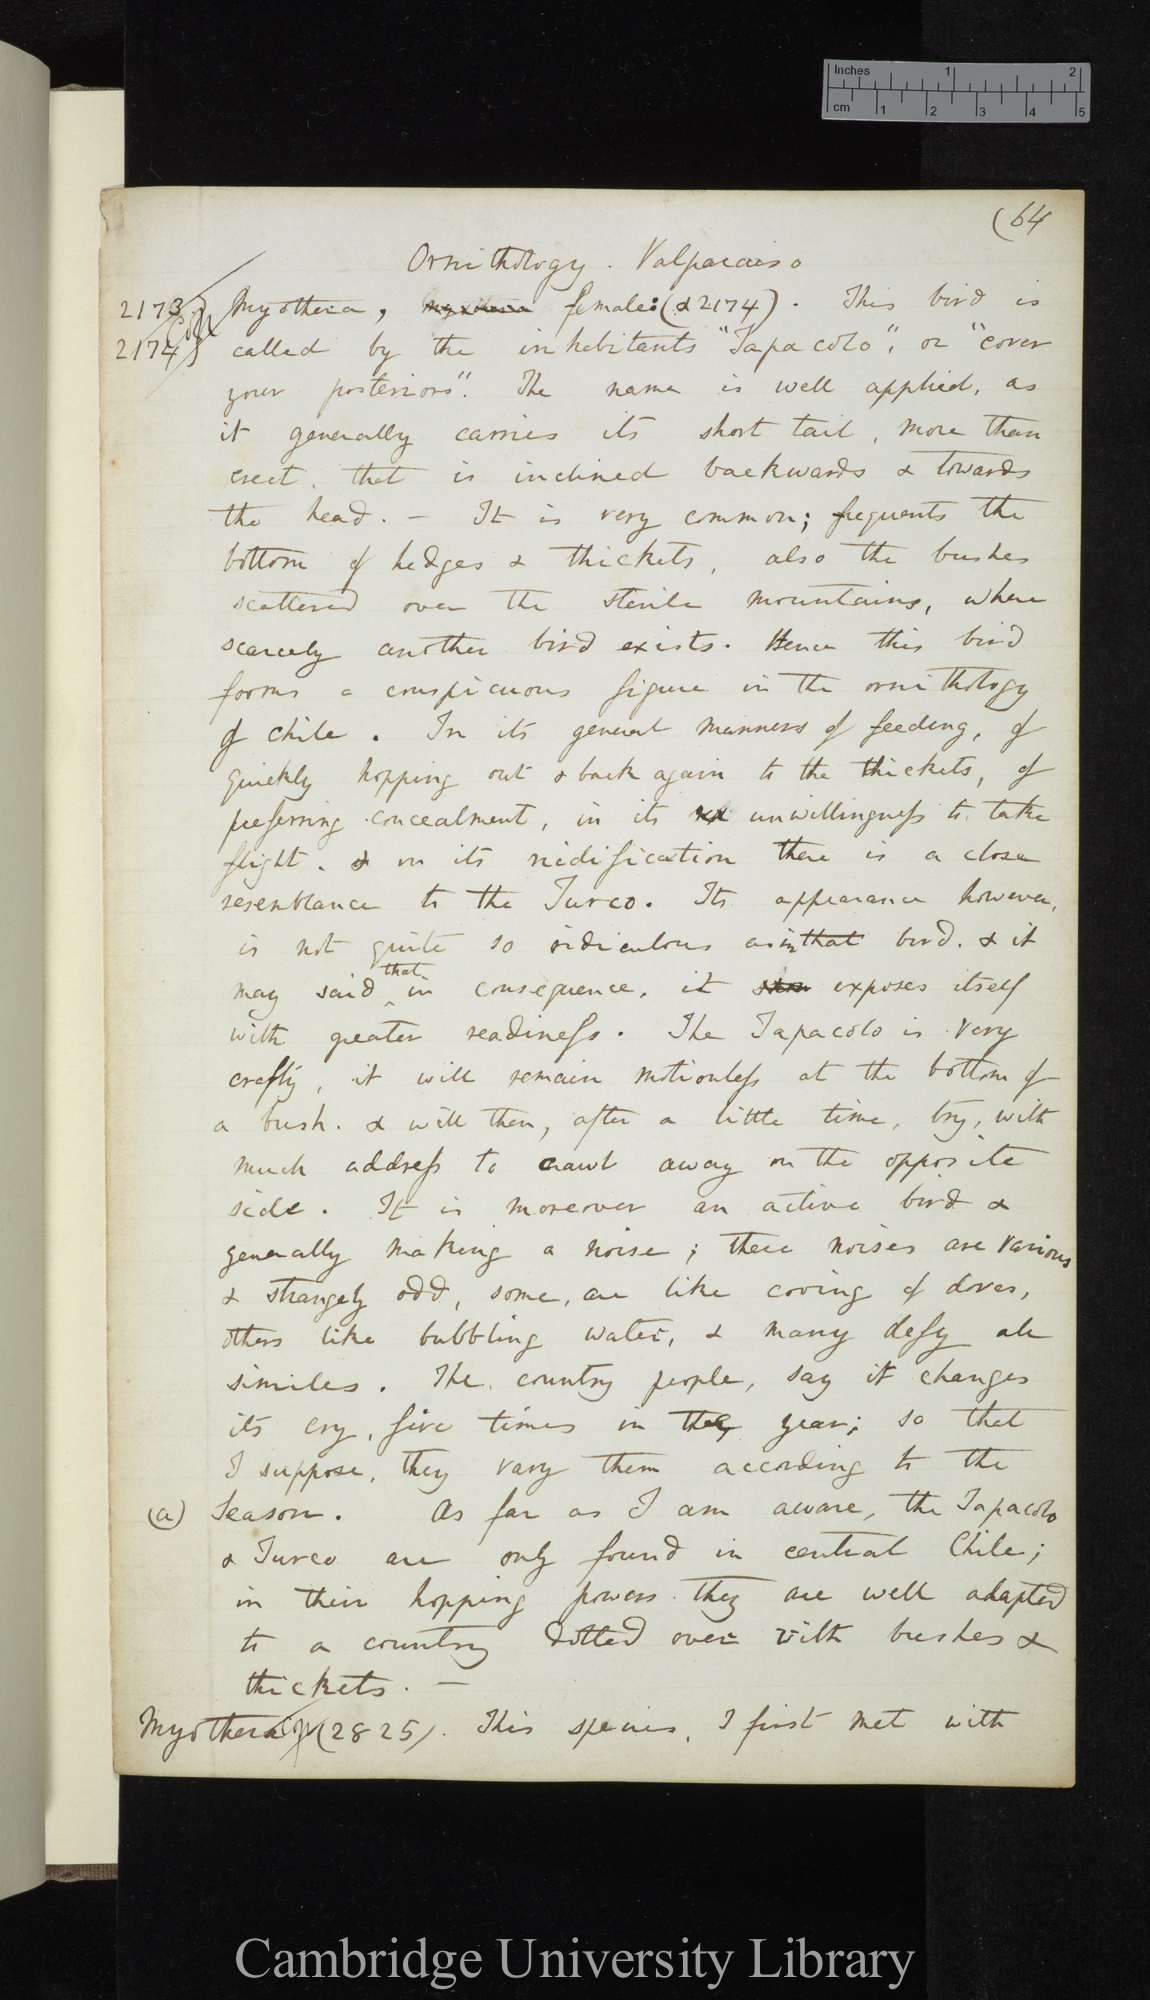 Inches 1 2
cm 1 2 3 4 5
(64
Ornithology. Valparaiso
2173) Myothera, female: (& 2174). This bird is
2174) called by the inhabitants "Tapacolo", or "cover
your posteriors". The name is well applied, as
it generally carries its short tail, more than
erect, that is inclined backwards & towards
the head. — It is very common; frequents the
bottom of hedges & thickets, also the bushes
scattered over the sterile mountains, where
scarcely another bird exists. Hence this bird
forms a conspicuous figure in the ornithology
of Chile. In its general manners of feeding, of
quickly hopping out & back again to the thickets, of
preferring concealment, in its unwillingness to take
flight, & in its nidification there is a close
resemblance to the Turco. Its appearance however,
is not quite so ridiculous as in that bird. & it
may said that in consequence, it exposes itself
with greater readiness. The Tapacolo is very
crafty, it will remain motionless at the bottom of
a bush. & will then, after a little time, try, with
much address to crawl away on the opposite
side. It is moreover an active bird &
generally making a noise; these noises are various
& strangely odd, some, are like cooing of doves,
others like bubbling water, & many defy all
similes. The country people, say it changes
its cry, five times in the year; so that
I suppose, they vary them according to the
(a) Season. As far as I am aware, the Tapacolo
& Turco are only found in central Chile;
in their hopping powers they are well adapted
to a country dotted over with bushes &
thickets. —
Myothera (2825). This species, I first met with
Cambridge University Library